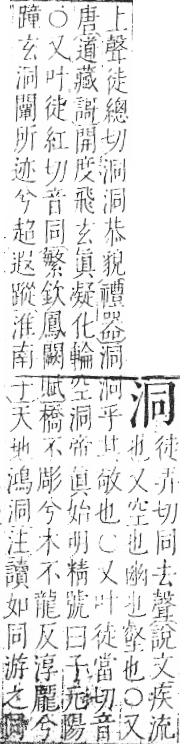 洞
徒弄切同去聲說文疾流
也又空也幽也壑也〇又
上聲徒總切洞洞恭貌禮器洞洞乎其敬也〇又叶徒當切音
唐道藏謌開度飛玄眞凝化輪空洞帝眞始明精號曰子元陽
〇又叶徒紅切音同繁欽鳳闕賦橋不彫兮木不龍反淳龎兮
蹱玄洞闡所迹兮超遐蹤淮南子天地鴻洞注讀如同游之同